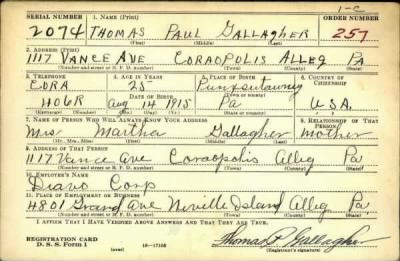 1-C
SERIAL NUMBER 1. NAME (Print) ORDER NUMBER
2074 THOMAS PAUL GALLAGHER 257
(First) (Middle) (Last)
2. ADDRESS (Print)
1117 VANCE AVE CORAOPOLIS ALLEG PA
(Number and street or R. F. D. number) (Town) (County) (State)
3. TELEPHONE 4. AGE IN YEARS 5. PLACE OF BIRTH 6. COUNTRY OF CITIZENSHIP
CORA 25 Punxsutawney
DATE OF BIRTH (Town or county)
406R Aug 14 1915 Pa USA.
(Exchange) (Number) (Mo.) (Day) (Yr.) (State or country)
7. NAME OF PERSON WHO WILL ALWAYS KNOW YOUR ADDRESS 8. RELATIONSHIP OF THAT PERSON
Mrs Martha Gallagher Mother
(Mr., Mrs., Miss) (First) (Middle) (Last)
9. ADDRESS OF THAT PERSON
1117 Vance Ave Coraopolis Alleg Pa
(Number and street or R. F. D. number) (Town) (County) (State)
10. EMPLOYER'S NAME
Dravo Corp
11. PLACE OF EMPLOYMENT OR BUSINESS
4801 Grand Ave Neville Island Alleg Pa
(Number and street or R. F. D. number) (Town) (County) (State)
I AFFIRM THAT I HAVE VERIFIED ABOVE ANSWERS AND THAT THEY ARE TRUE.
REGISTRATION CARD
D. S. S. Form 1 (over) 16—17105 Thomas P. Gallagher
(Registrant's signature)